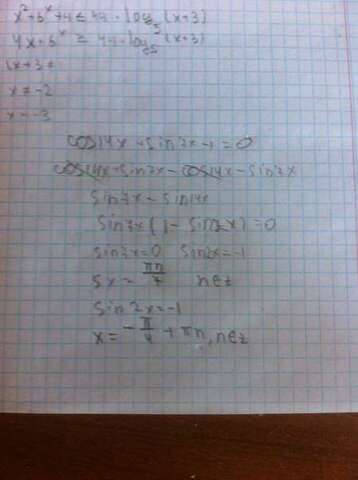 x²+5ˣ+4 ≤ 44 - log₅(x+3)
4x+5ˣ ≤ 44 - log₅(x+3)
(x+3 =
x ≠ -2
x = -3
cos14x + sin7x - 1 = 0
cos14x + sin7x - cos14x - sin7x
sin7x - sin14x
sin7x(1 - sin2x) = 0
sin7x = 0 sin2x = -1
5x = πn/7 n∈z
sin2x = -1
x = -π/4 + πn, n∈z